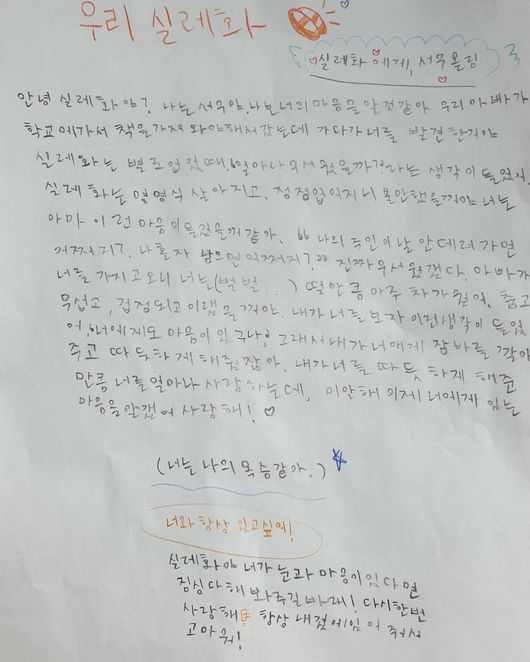 우리 실레화
실레화에게, 서무올림
안녕 실레화야? 나는 서무야. 나는 너의 마음을 알것같아 우리 아빠가
학교에가서 책을 가져와야해서 갔는데 가다가 너를 발견한거야
실레화는 별로 없었때, 얼마나 무서웠을까?라는 생각이 들었어.
실레화는 몇명식 살아지고, 점점 없어지니 불안했을꺼야 너는
아마 이런 마음이 들었을꺼같아. 66 나의 주인이 날 안 데려가면
어쩌지?, 나 혼자 남으면 어쩌지? 99 진짜 무서웠겠다. 아빠가
너를 가지고 오니 너는(벌벌...) 떨만큼 아주 차가웠어. 춥고
무섭고, 걱정되고 이랬을꺼야. 내가 너를 보자 이런생각이 들었
어, 너에게도 마음이 있구나? 그래서 내가 너에게 잠바를
주고 따듯하게 해줬잖아. 내가 너를 따듯하게 해준
만큼 너를 얼마나 사랑하는데, 미안해 이제 너에게 있는
마음을 알겠어 사랑해! ♡
(너는 나의 목숨같아.)
너와 항상 있고싶어!
실레화야 너가 눈과 마음이 있다면
진심 다해 봐주길 바래! 다시한번
사랑해 항상 내 곁에 있어 줘서
고마워!